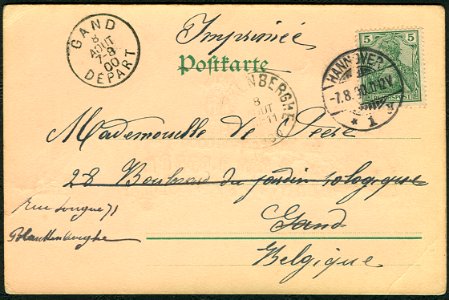 GAND
8
AOUT
7-8
00
DEPART
Imprimée
5 5
HANNOVER
-7.8.00.11-12V.
* 1 *
Postkarte
NBERGHE
8
OUT
11
Mademoiselle de Peere
28 Boulevard du jardin zologique
Rue Longue 71
Gand
Blankenberghe
Belgique